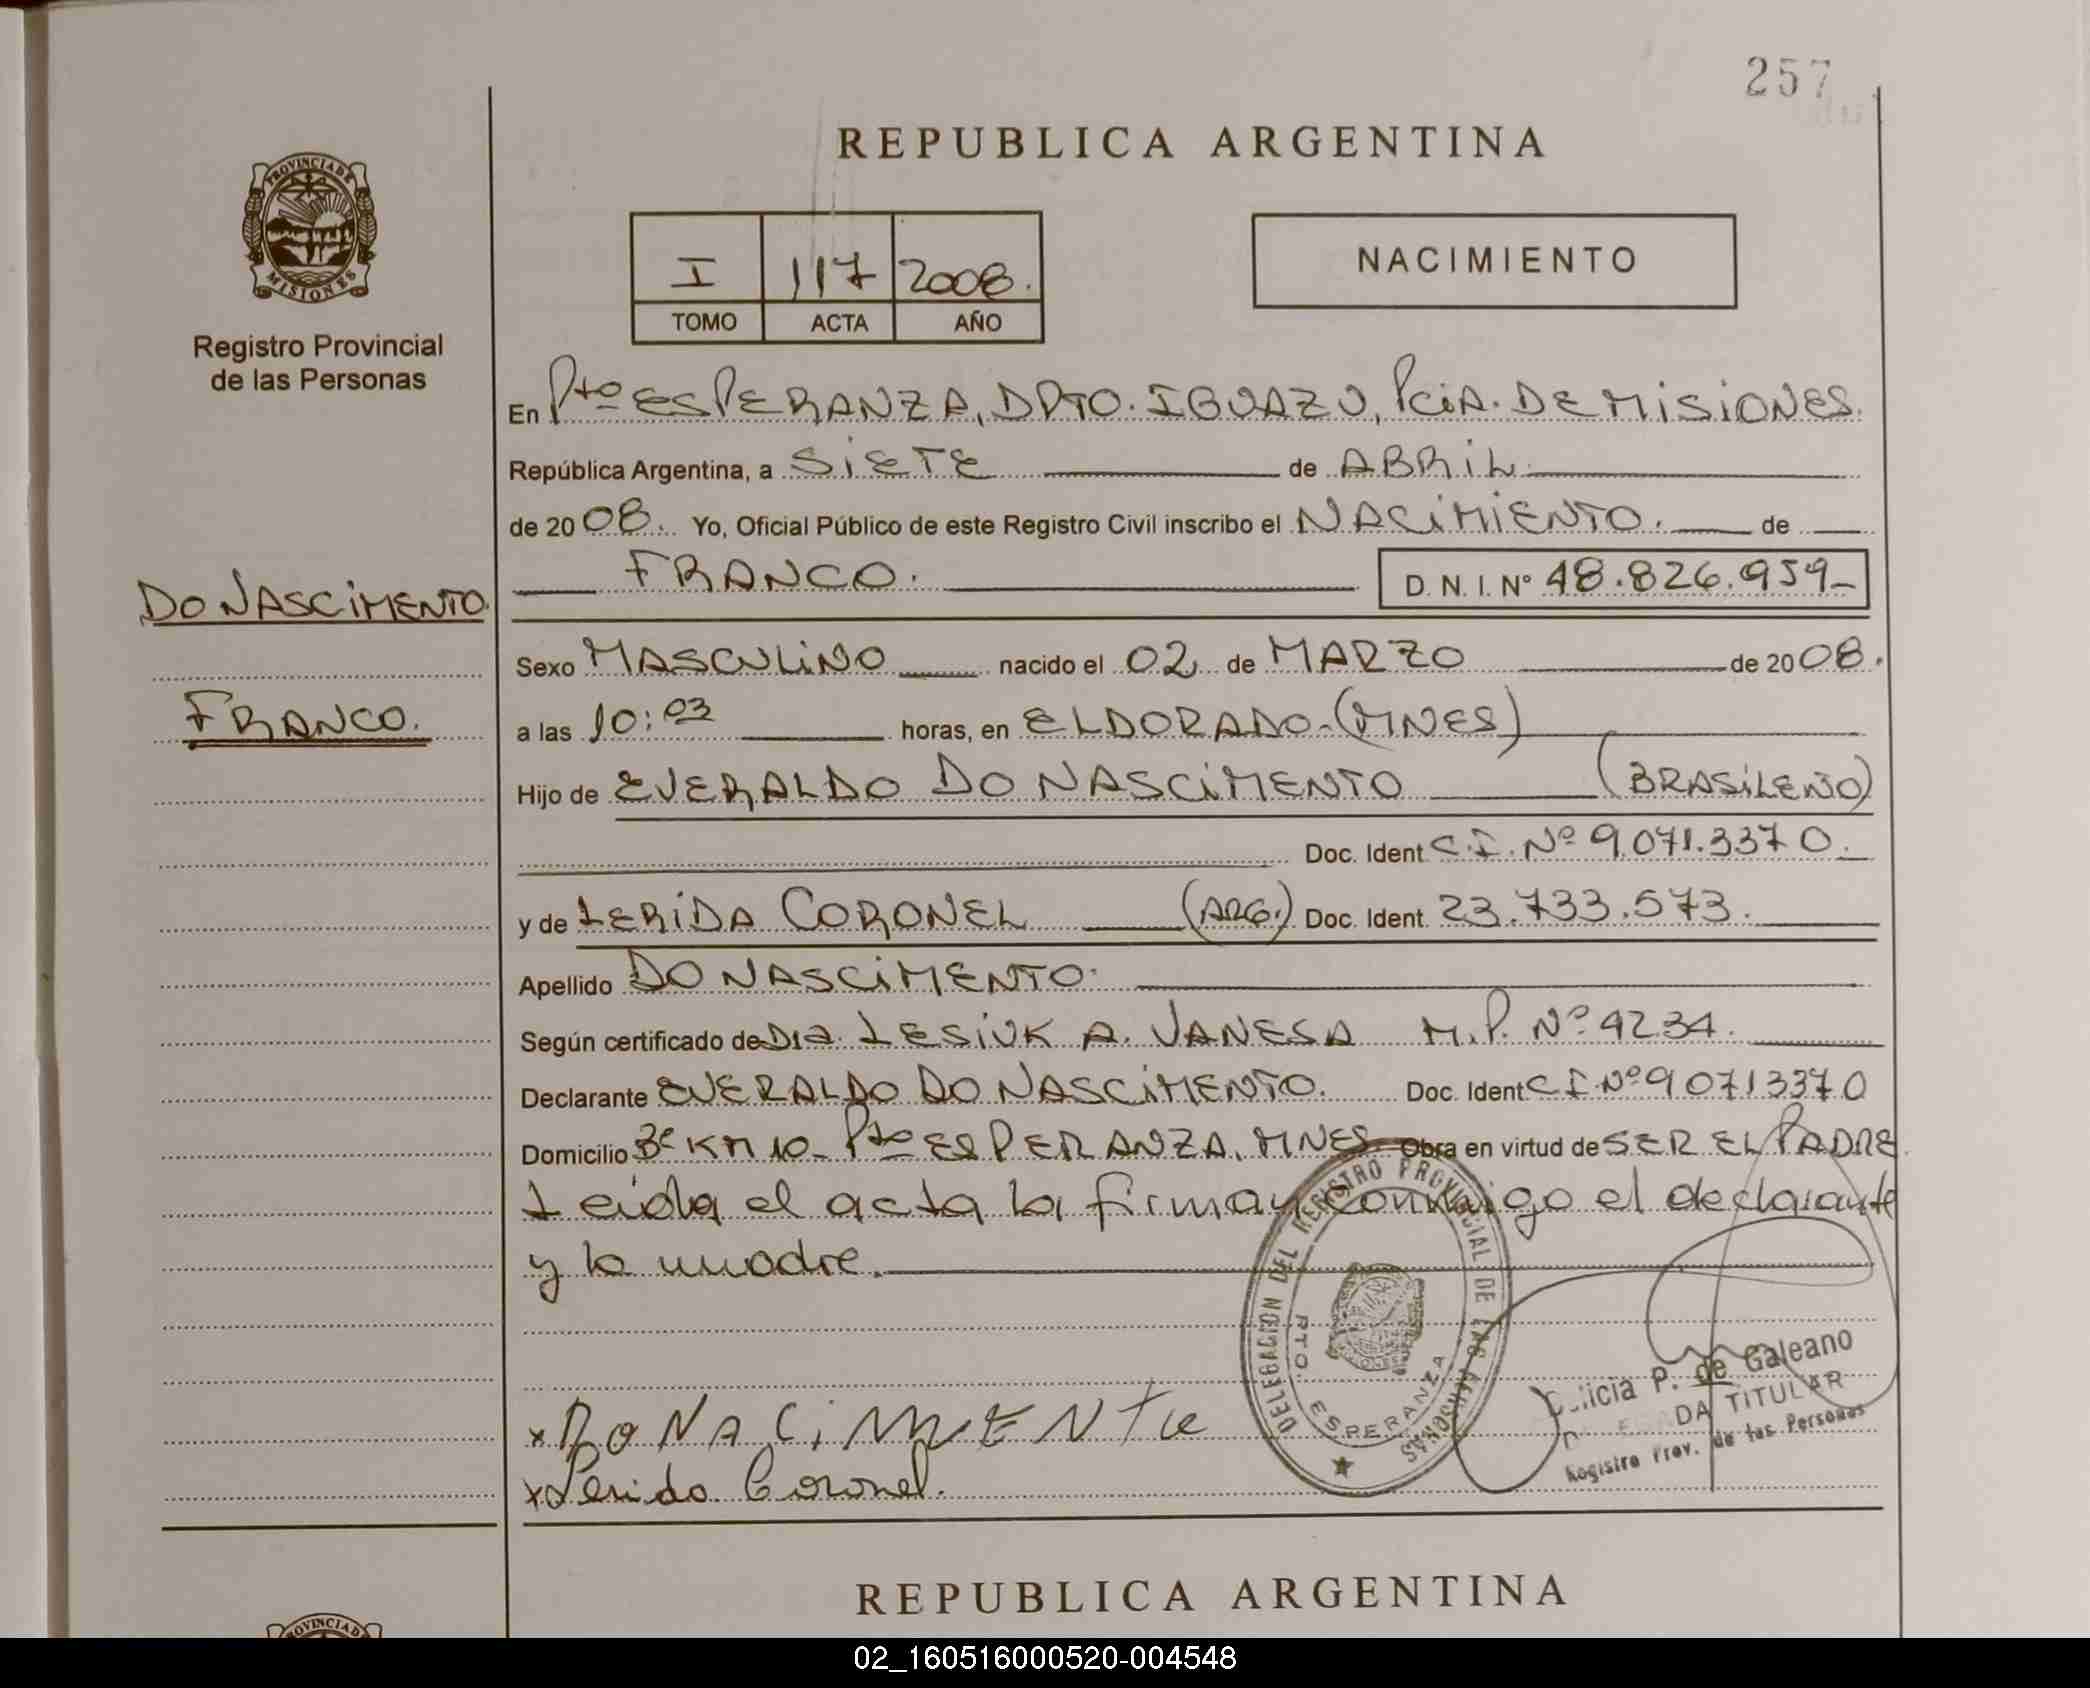 257
REPUBLICA ARGENTINA
PROVINCIA DE
MISIONES
Registro Provincial
de las Personas
I 117 2008.
TOMO ACTA AÑO
NACIMIENTO
En Pto ESPERANZA, DPTO. IGUAZU, PciA. DE MiSiONES.
República Argentina, a SiETE de ABRiL
de 2008. Yo, Oficial Público de este Registro Civil inscribo el NACiMiENTO. de
FRANCO. D. N. I. Nº 48.826.959-
DO NASCiMENTO.
FRANCO.
Sexo MASCULiNO nacido el 02 de MARZO de 2008.
a las 10:03 horas, en ELDORADO-(MNES)
Hijo de EVERALDO DO NASCiMENTO (BRASiLEÑO)
Doc. Ident C.I. Nº 9.071.3370.
y de LERiDA CORONEL (ARG.) Doc. Ident. 23.733.573.
Apellido DO NASCiMENTO.
Según certificado de DRA. LESiUK A. VANESA M.P. Nº 4234.
Declarante EVERALDO DO NASCiMENTO. Doc. Ident C I Nº 90713370
Domicilio Bº KM 10- Pto ESPERANZA, MNES. Obra en virtud de SER EL PADRE
Leida el acta la firman conmigo el declarante
y la madre.
DELEGACION DEL REGISTRO PROVINCIAL DE LAS PERSONAS
PTO. ESPERANZA
x DONACiMENTO
x Lerida Coronel.
P. de Galeano
DELEGADA TITULAR
Registro Prov. de las Personas
REPUBLICA ARGENTINA
PROVINCIA D
02_160516000520-004548